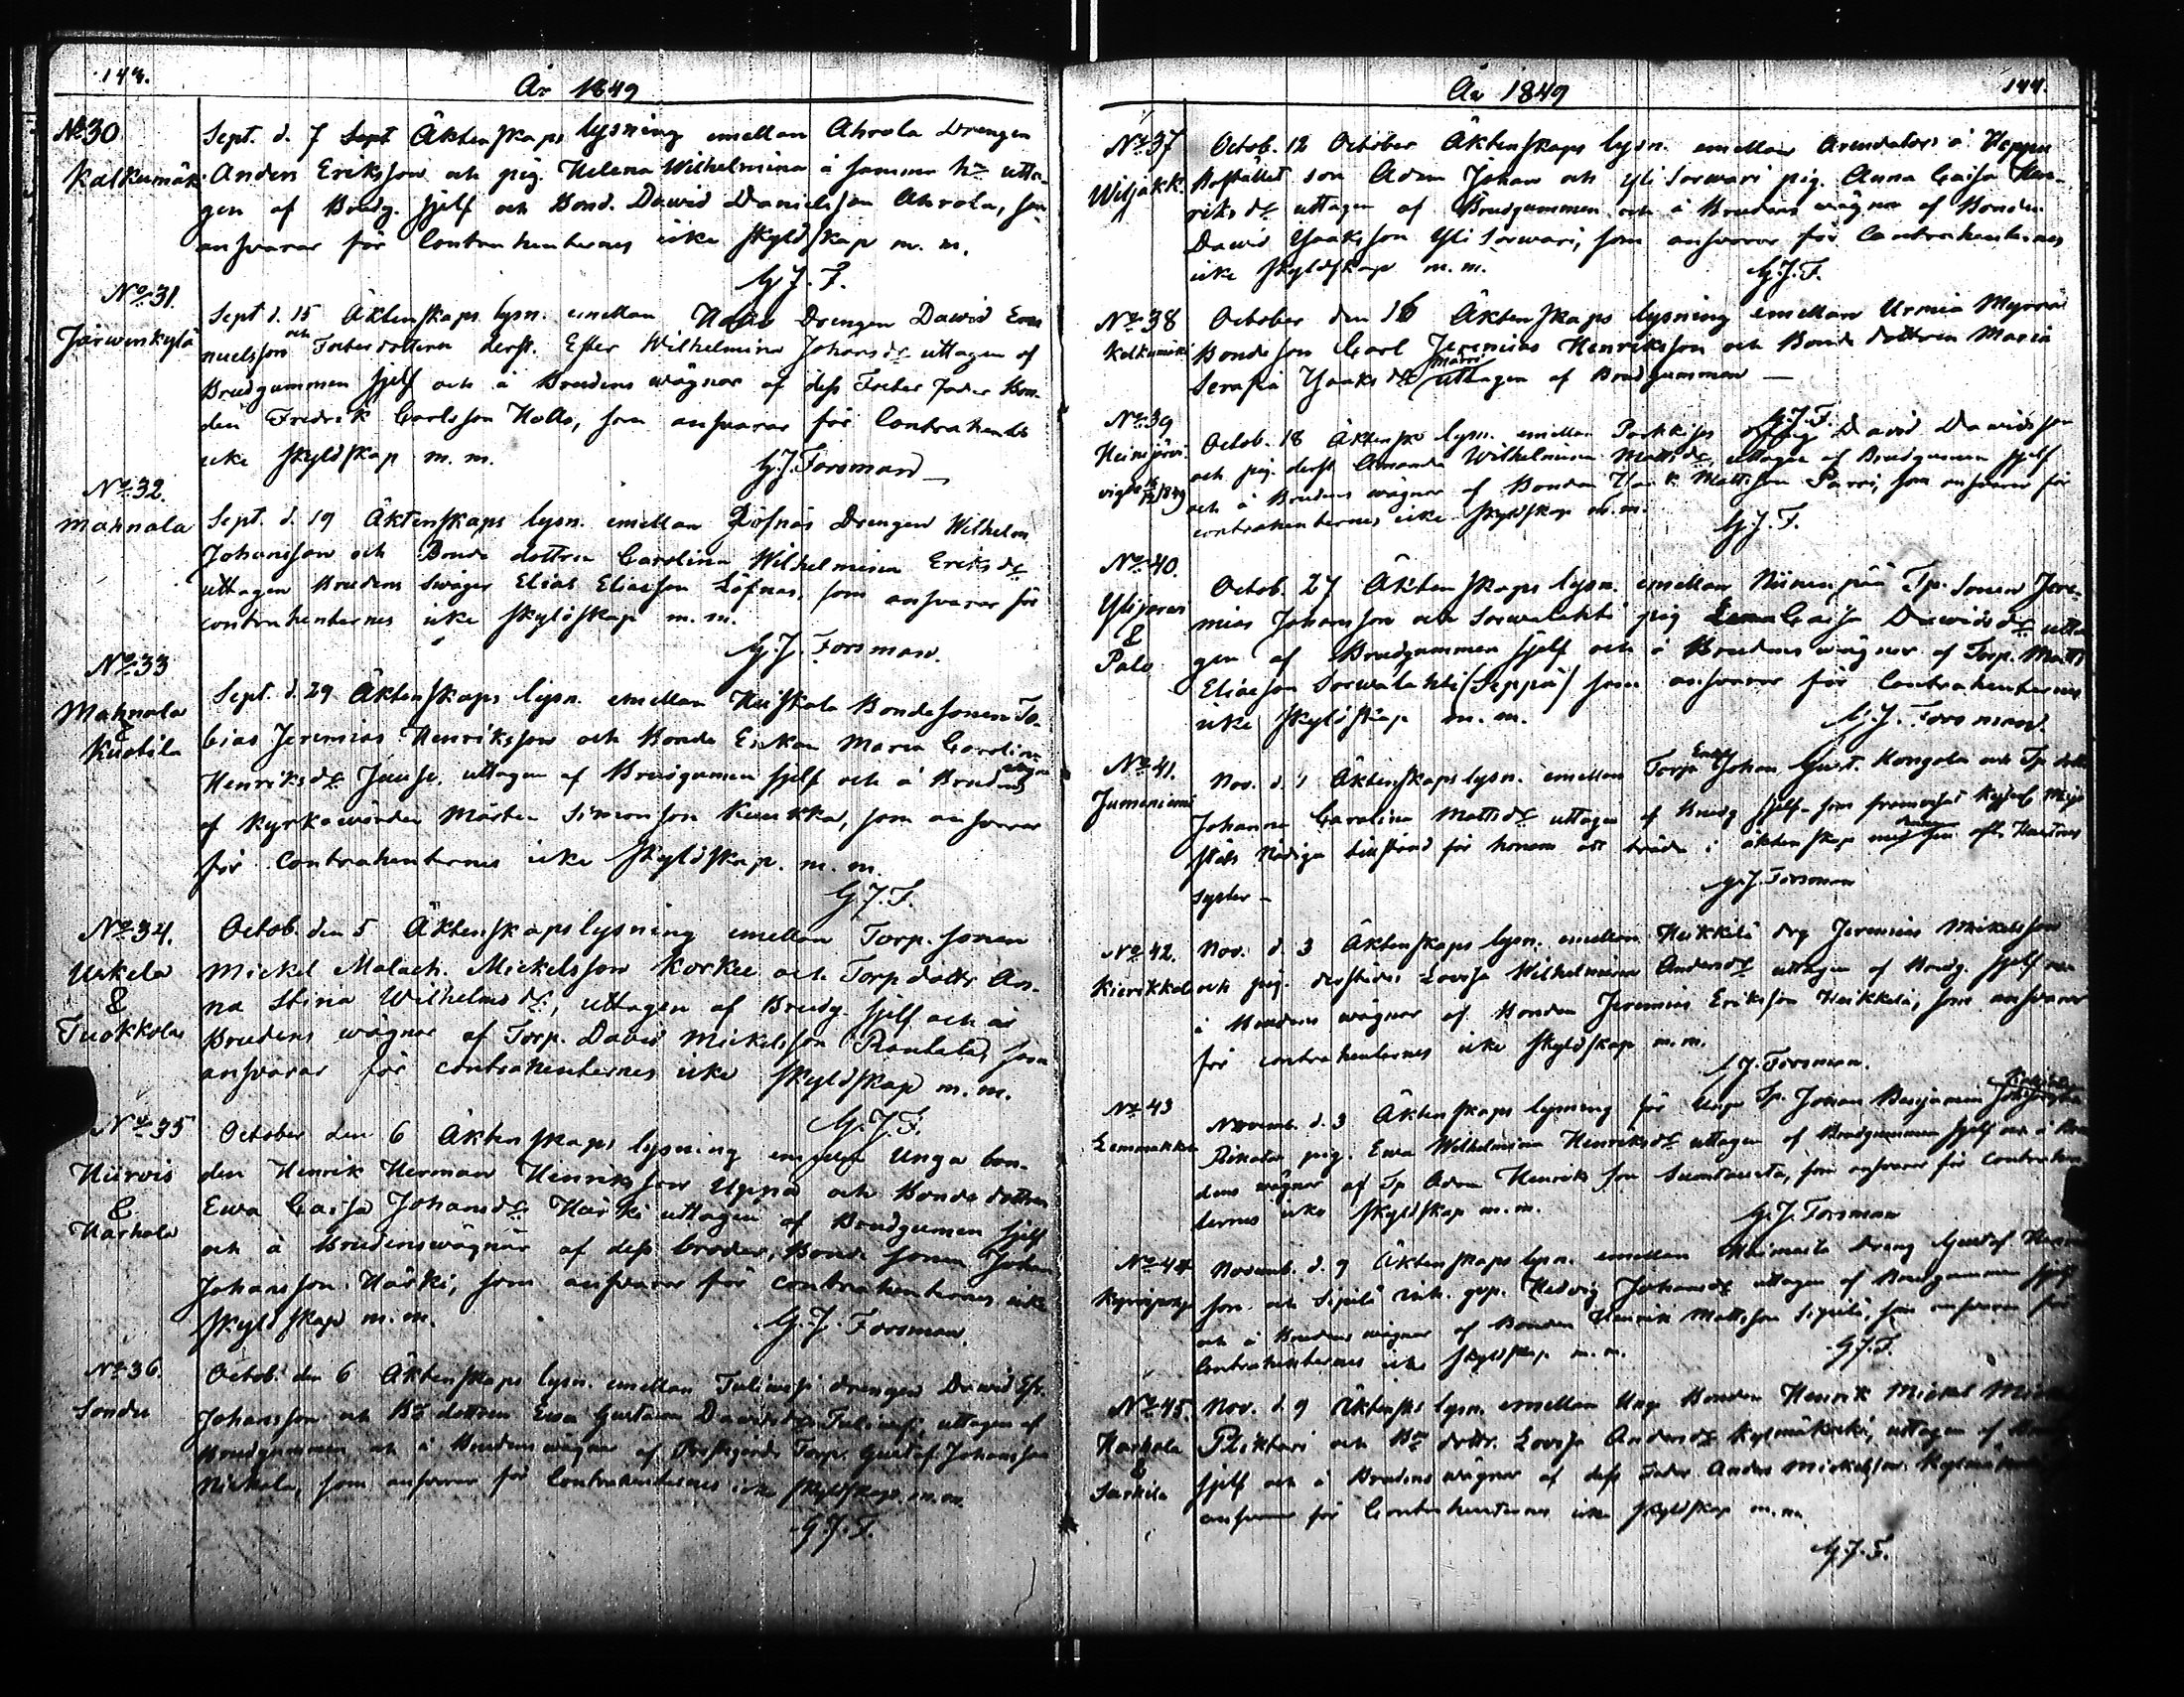 143.
År 1849
No 30
Kalkumäk
Sept. d. 7 Sept Äktenskaps lysning emellan Ahrola Drengen
Anders Eriksson och pig. Helena Wilhelmina å samma hn utta-
gen af Brudg. sjelf och Bond. Dawid Danielsson Ahrola, som
ansvarar för Contrahenternes icke skyldskap m. m.
G. J. F.
No 31.
Järwenkylä
Sept d. 15 Äktenskaps lysn. emellan Drengen Dawid Ema
nuelsson och Fosterdottren derst. Ester Wilhelmina Johansdr uttagen af
Brudgummen sjelf och å Brudens wägnar af dess Foster fader Bon-
den Fredrik Carlsson Hollo, som ansvarar för Contrahents
icke skyldskap m. m.
G. J. Forsman
No 32.
Mahnala
Sept. d. 19 Äktenskaps lysn. emellan Löfnäs Drengen Wilhelm
Johansson och Bonde dottren Carolina Wilhelmina Eriksdr
uttagen Brudens Swåger Elias Eliasson Löfnas, som ansvarar för
contrahenternes icke skyldskap m. m.
G. J. Forsman.
No 33
Mahnala
&
Kuotila
Sept. d. 29 Äktenskaps lysn. emellan Heiskala Bondesonen To-
bias Jeremias Henriksson och Bonde Enkan Maria Carolina
Henriksdr uttagen af Brudgumen sjelf och å Brudens wägn
af Kyrkowärden Mårten Simonsson Kuukka, som ansvarar
för Contrahenternes icke skyldskap. m. m.
G. J. F.
No 34.
Uskela
&
Tuokkola
Octob. den 5 Äktenskapslysning emellan Torp. sonen
Mickel Malach. Mickelsson Korkee och Torp dottr An-
na Stina Wilhelmsdr, uttagen af Brudg. sjelf och å
Brudens wägnar af Torp. David Mickelsson Rantala, som
ansvarar för contrahenternes icke skyldskap m. m.
G. J. F.
No 35
Hirvis
&
Harhala
October den 6 Äktenskaps lysning emellan Unga bon-
den Henrik Herman Henriksson Uppa och Bonde dottren
Ewa Caisa Johansdr Härki uttagen af Brudgumen sjelf
och å Brudenswägnar af dess broder, Bonde sonen Johan
Johansson Härki, som ansvarar för contrahenternes icke
skyldskap m. m.
G. J. Forsman.
No 36.
Sondu
Octob. den 6 Äktenskaps lysn. emellan drengen Dawid
Johansson och dottren Ewa Gustava Davidsdr uttagen af
Brudgummen och å Brudens wägnar af Torp. Gustaf Johansson
som ansvarar för Contrahenternes icke skyldskap m. m.
G. J. F.
År 1849
144.
No 37
Wiljakk.
Octob. 12 October Äktenskaps lysn. emellan Arendators å
Bostället son Adam Johan och Yli Sorwari pig. Anna Caisa Hen-
riksdr uttagen af Brudgummen och å Brudens wägnar af Bonden
Dawid Isaksson Yli Sorwari, som ansvarar för Contrahenternes
icke skyldskap m. m.
G. J. F.
No 38
Kalkumäki
October den 16 Äktenskaps lysning emellan Urmia Myrrä
Bonde son Carl Jeremias Henriksson och Bonde dottren Maria
Serafia Isaksdr uttagen af Brudgumman —
G. J. F.
No 39
Heinijärvi.
Octob. 18 Äktensk lysn. emellan David Davidsson
och pig. derst. Amanda Wilhelmina Mattsdr, uttagen af Brudgumen sjelf
och å Brudens wägnar af Bonden Mattsson Parri, som ansvarar för
contrahenternes icke skyldskap m. m.
G. J. F.
No 40.
Ylijoens
&
Palo
Octob. 27 Äktenskaps lysn. emellan Niinenpää Tp. sonen Jere-
mias Johansson och Sorwalahti pig Caisa Davidsdr utta
gen af Brudgummen sjelf och å Brudens wägnar af Torp. Matts
Eliasson Sorwalahti (Seppä) som ansvarar för Contrahenternes
icke skyldskap m. m.
G. J. Forsman.
No 41.
Jumeniemi
Nov. d. 1 Äktenskapslysn. emellan Torp Enkl Johan Gust. Kongola och Tp dottr
Johanna Carolina Mattsdr uttagen af Brudg sjelf som framvisat Kejserl. Maje
stäts Nådiga tillstånd för honom att träda i äktenskap med sin afl. Hustrus
syster —
G. J. Forsman
No 42.
Kierikkala
Nov. d. 3 Äktenskaps lysn. emellan Heikkilä drg Jeremias Mikelsson
och pig. derstädes Lovisa Wilhelmina Andersdr uttagen af Brudg. sjelf och
å Brudens wägnar af Bonden Jeremias Eriksson Heikkilä, som ansvarar
för contrahenternes icke skyldskap m. m.
G. J. Forsman.
No 43
Lemmakka
Novemb. d. 3 Äktenskaps lysning för Unge Tp. Johan Benjamin
pig. Ewa Wilhelmina Henriksdr uttagen af Brudgummen sjelf och å Bru
dens wägnar af Tp Adam Henriksson som ansvarar för Contrahen
ternes icke skyldskap m. m.
G. J. Forsman
No 44
Novemb. d. 9 Äktenskaps lysn. emellan dreng Gustaf
son och Sipilä Hedvig Johansdr uttagen af Brudgummen sjelf
och å Brudens wägnar af Bonden Henrik Mattsson Sipilä, som ansvarar för
Contrahenternes icke skyldskap m. m.
G. J. F.
No 45.
Harhala
&
Sarkila
Nov. d. 9 Äktensks lysn. emellan Ung Bonden Henrik Mickel
och Bn dottr. Lovisa Andersdr uttagen af
sjelf och å Brudens wägnar af dess fader Anders Mickelsson
ansvarar för Contrahenternes icke skyldskap m. m.
G. J. F.